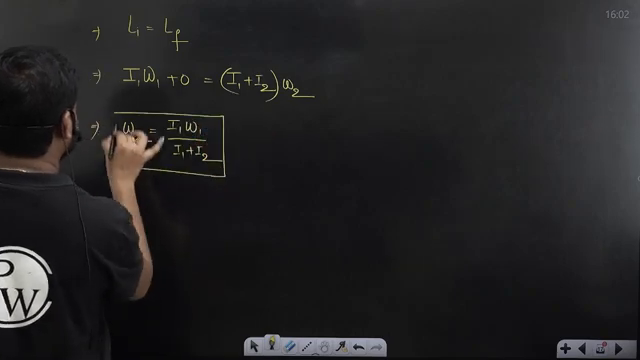 16:02
⇒ L₁ = L_f
⇒ I₁W₁ + 0 = (I₁+I₂) ω₂
⇒ W = I₁W₁ / I₁+I₂
PW